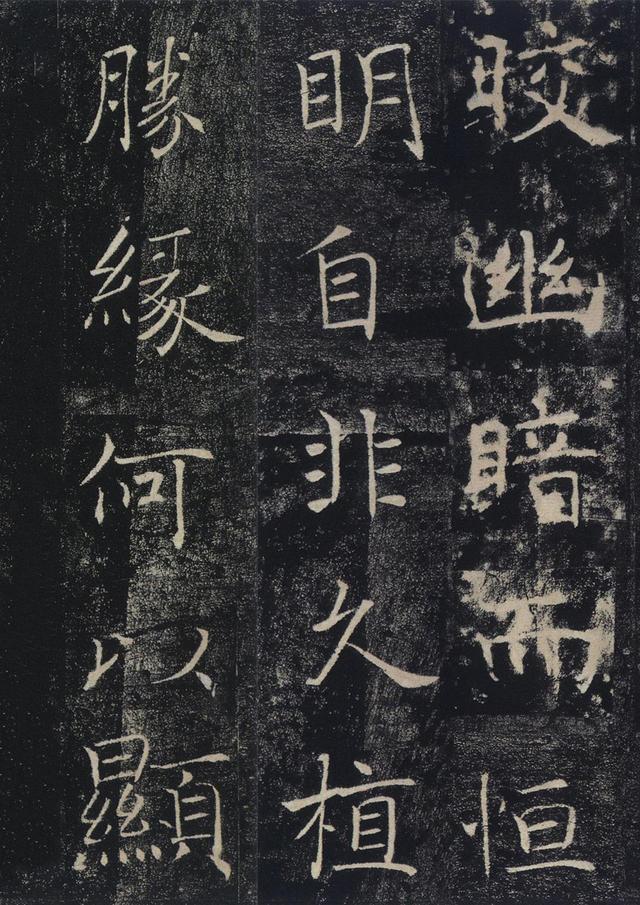 晈幽暗而恒
明自非久植
勝緣何以顯